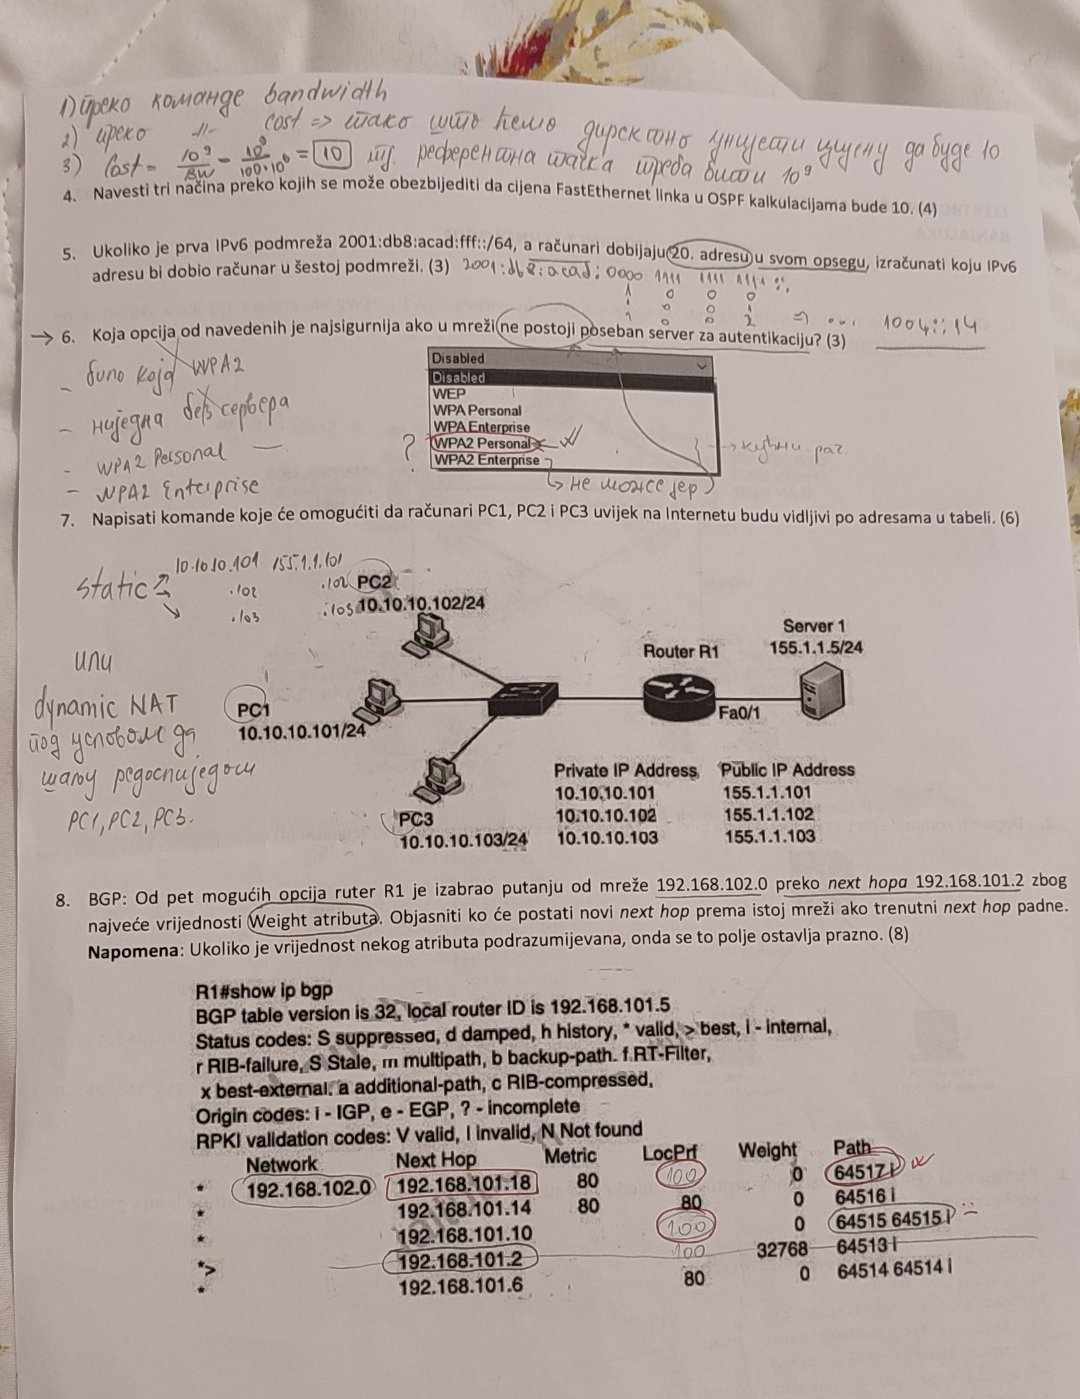 1) преко команде bandwidth
2) преко -//- cost => тако што ћемо директно унијети цијену да буде 10
3) Cost = 10⁹/BW = 10⁹/100·10⁶ = 10 тј. референтна тачка треба бити 10⁹
4. Navesti tri načina preko kojih se može obezbijediti da cijena FastEthernet linka u OSPF kalkulacijama bude 10. (4)
5. Ukoliko je prva IPv6 podmreža 2001:db8:acad:fff::/64, a računari dobijaju 20. adresu u svom opsegu, izračunati koju IPv6
adresu bi dobio računar u šestoj podmreži. (3) 2001:db8:acad: 0000 1111 1111 1111 ::
1 0 0 0
1 0 0 2 => ... 1004::14
→ 6. Koja opcija od navedenih je najsigurnija ako u mreži ne postoji poseban server za autentikaciju? (3)
- било која WPA2
- ниједна без сервера
- WPA2 Personal
- WPA2 Enterprise
Disabled
Disabled
WEP
WPA Personal
WPA Enterprise
? WPA2 Personal
WPA2 Enterprise
→ кућни рач.
не може јер
7. Napisati komande koje će omogućiti da računari PC1, PC2 i PC3 uvijek na Internetu budu vidljivi po adresama u tabeli. (6)
static
10.10.10.101 155.1.1.101
.102 .102
.103 .103
или
dynamic NAT
под условом да
шаљу редослиједом
PC1, PC2, PC3.
PC2
10.10.10.102/24
Server 1
155.1.1.5/24
Router R1
Fa0/1
PC1
10.10.10.101/24
PC3
10.10.10.103/24
Private IP Address Public IP Address
10.10.10.101 155.1.1.101
10.10.10.102 155.1.1.102
10.10.10.103 155.1.1.103
8. BGP: Od pet mogućih opcija ruter R1 je izabrao putanju od mreže 192.168.102.0 preko next hopa 192.168.101.2 zbog
najveće vrijednosti Weight atributa. Objasniti ko će postati novi next hop prema istoj mreži ako trenutni next hop padne.
Napomena: Ukoliko je vrijednost nekog atributa podrazumijevana, onda se to polje ostavlja prazno. (8)
R1#show ip bgp
BGP table version is 32, local router ID is 192.168.101.5
Status codes: S suppressed, d damped, h history, * valid, > best, I - internal,
r RIB-failure, S Stale, m multipath, b backup-path. f.RT-Filter,
x best-external. a additional-path, c RIB-compressed,
Origin codes: i - IGP, e - EGP, ? - incomplete
RPKI validation codes: V valid, I invalid, N Not found
Network Next Hop Metric LocPrf Weight Path
* 192.168.102.0 192.168.101.18 80 100 0 64517 i
* 192.168.101.14 80 80 0 64516 i
* 192.168.101.10 100 0 64515 64515 i
*> 192.168.101.2 100 32768 64513 i
* 192.168.101.6 80 0 64514 64514 i